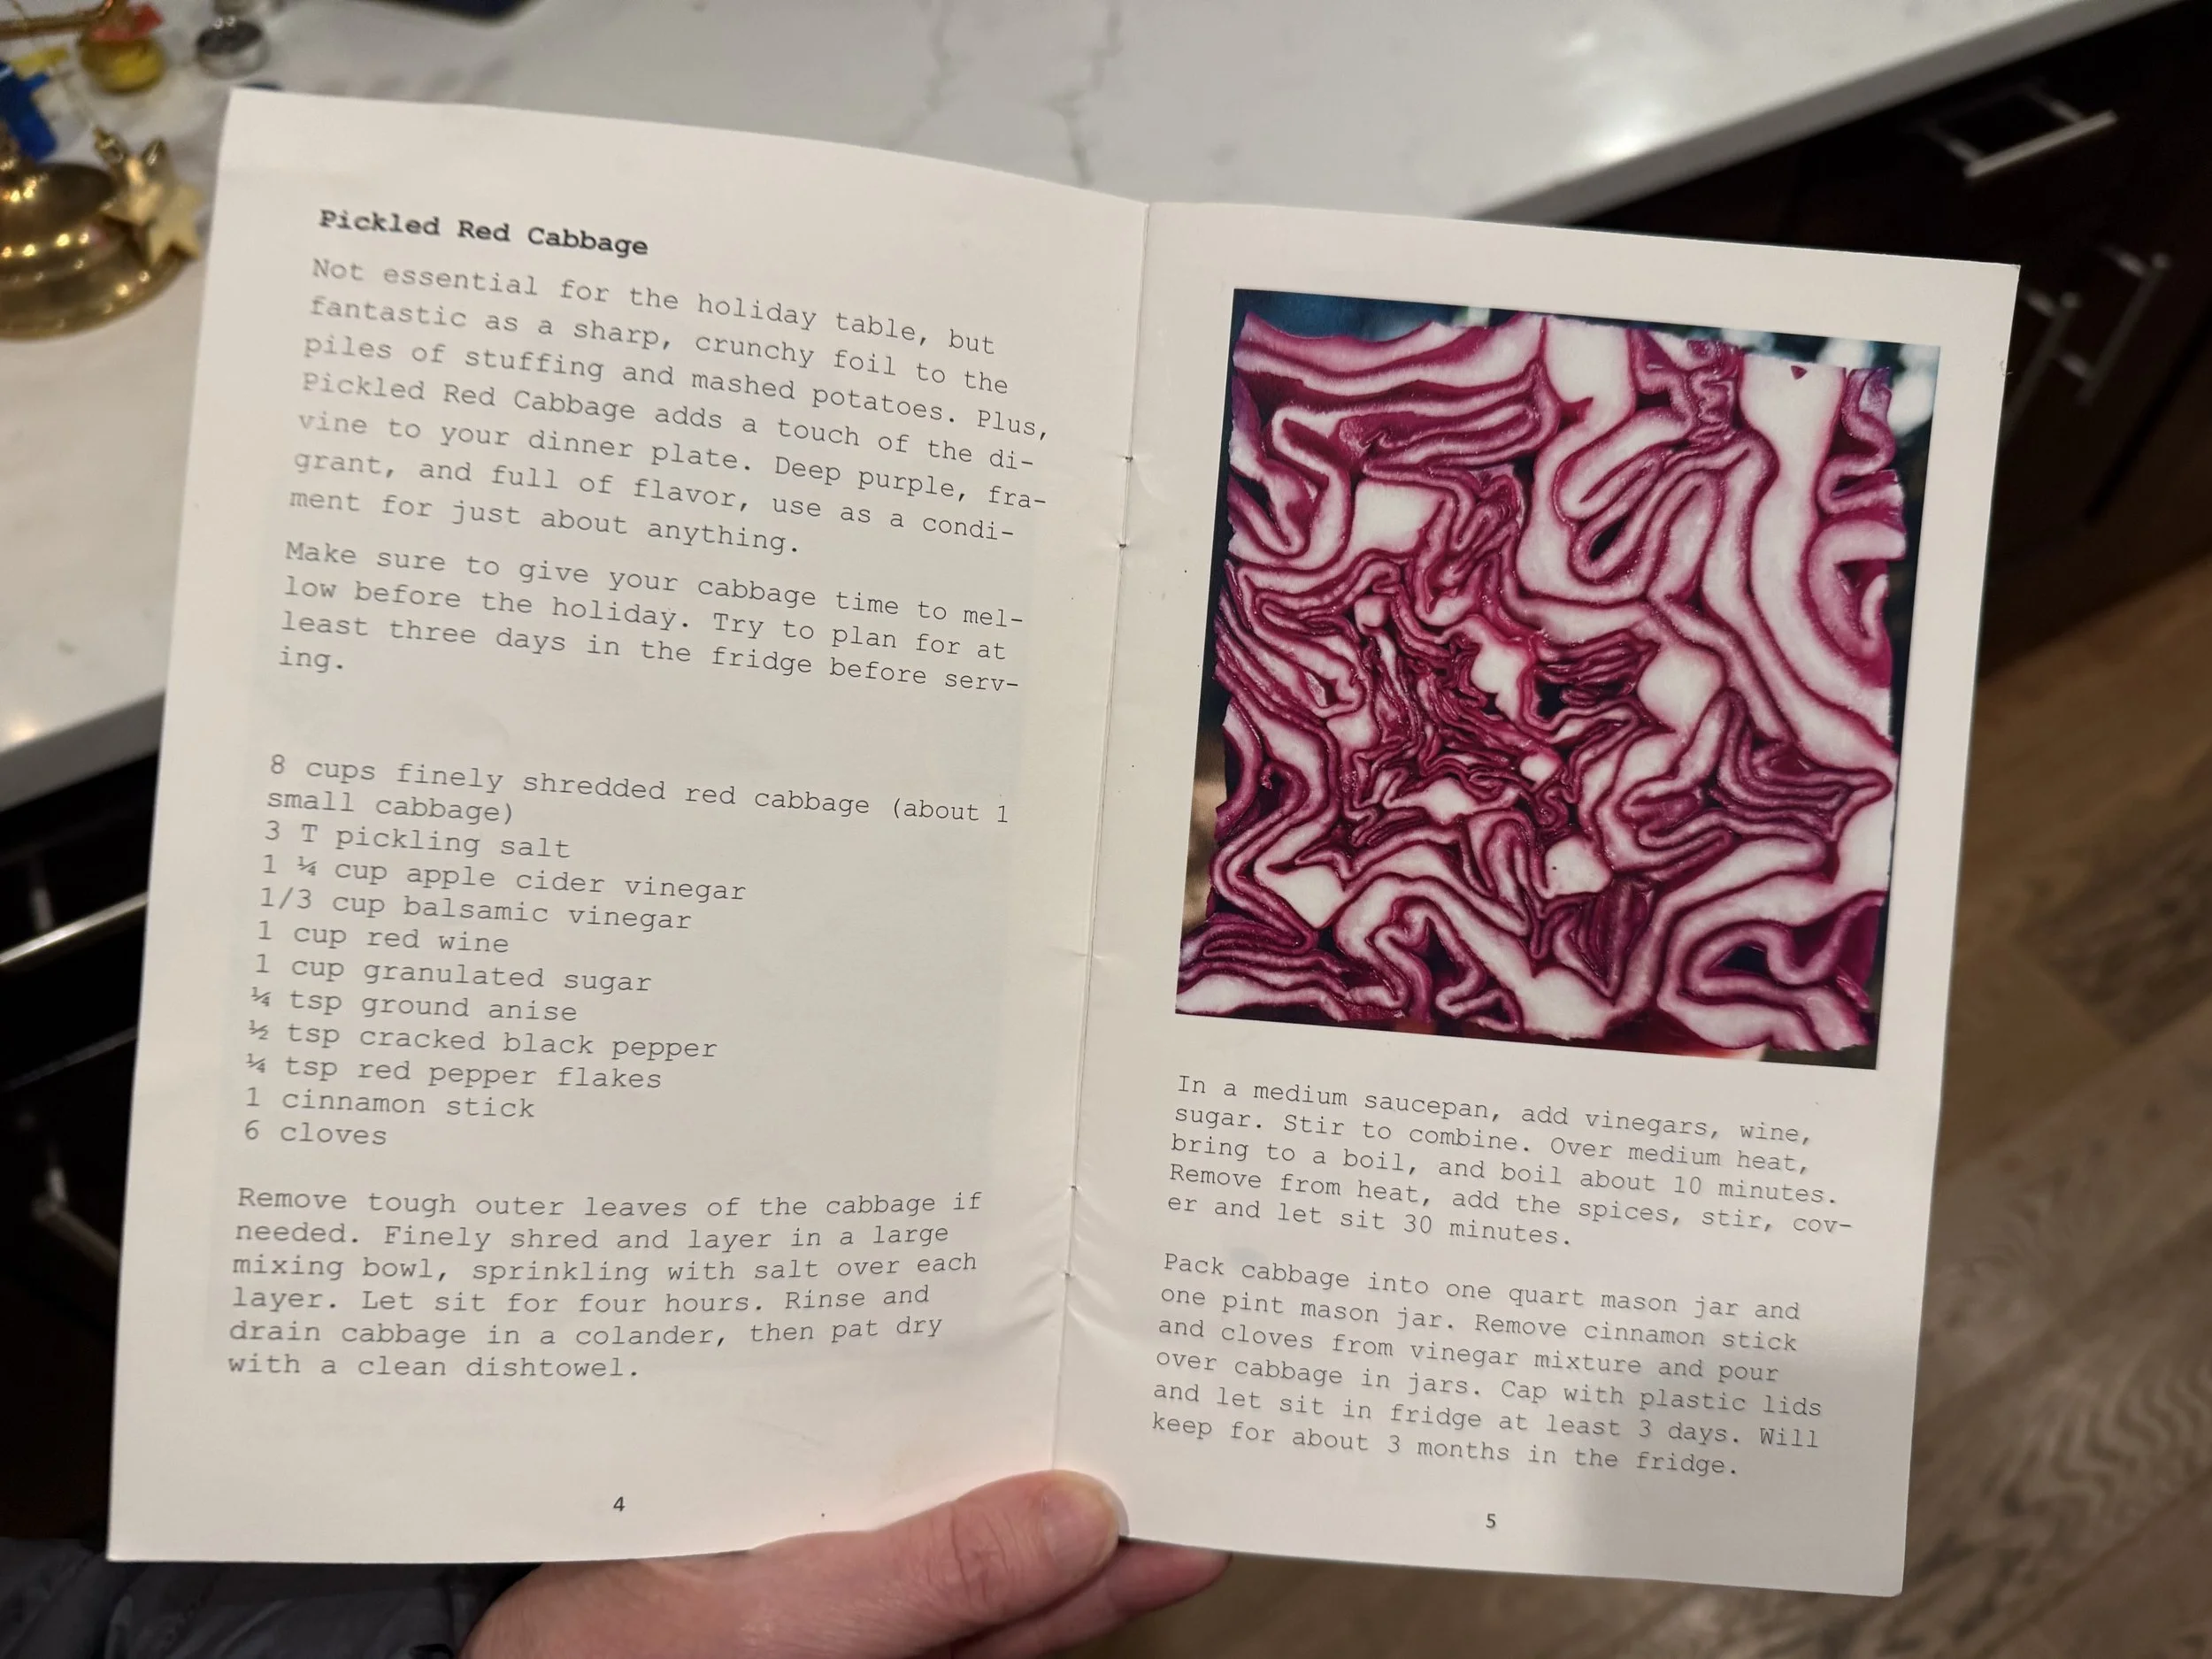 Pickled Red Cabbage
Not essential for the holiday table, but
fantastic as a sharp, crunchy foil to the
piles of stuffing and mashed potatoes. Plus,
Pickled Red Cabbage adds a touch of the di-
vine to your dinner plate. Deep purple, fra-
grant, and full of flavor, use as a condi-
ment for just about anything.
Make sure to give your cabbage time to mel-
low before the holiday. Try to plan for at
least three days in the fridge before serv-
ing.
8 cups finely shredded red cabbage (about 1
small cabbage)
3 T pickling salt
1 ¼ cup apple cider vinegar
1/3 cup balsamic vinegar
1 cup red wine
1 cup granulated sugar
¼ tsp ground anise
½ tsp cracked black pepper
¼ tsp red pepper flakes
1 cinnamon stick
6 cloves
Remove tough outer leaves of the cabbage if
needed. Finely shred and layer in a large
mixing bowl, sprinkling with salt over each
layer. Let sit for four hours. Rinse and
drain cabbage in a colander, then pat dry
with a clean dishtowel.
4
In a medium saucepan, add vinegars, wine,
sugar. Stir to combine. Over medium heat,
bring to a boil, and boil about 10 minutes.
Remove from heat, add the spices, stir, cov-
er and let sit 30 minutes.
Pack cabbage into one quart mason jar and
one pint mason jar. Remove cinnamon stick
and cloves from vinegar mixture and pour
over cabbage in jars. Cap with plastic lids
and let sit in fridge at least 3 days. Will
keep for about 3 months in the fridge.
5